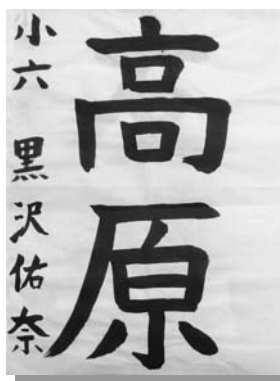 高原
小六 黒沢佑奈